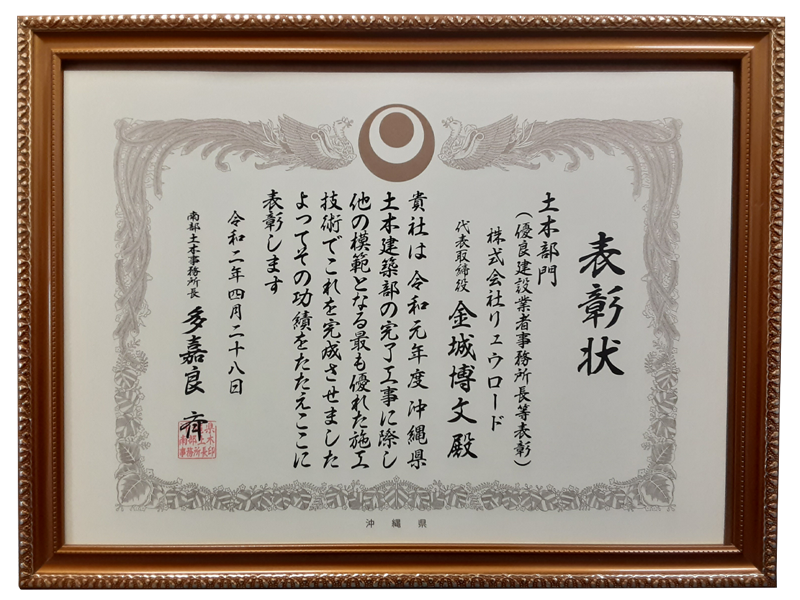 表彰状
土木部門
(優良建設業者事務所長等表彰)
株式会社リュウロード
代表取締役 金城博文殿
貴社は令和元年度沖縄県
土木建築部の完了工事に際し
他の模範となる最も優れた施工
技術でこれを完成させました
よってその功績をたたえここに
表彰します
令和二年四月二十八日
南部土木事務所長 多嘉良 斉
沖縄県